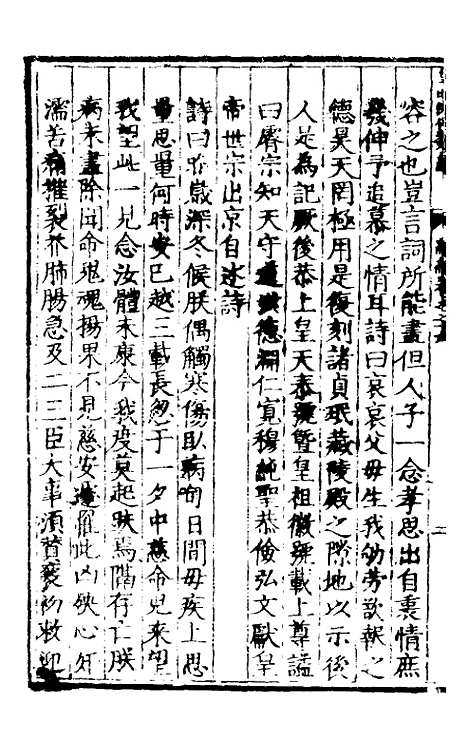 容之也豈言詞所能盡但人子一念孝思出自衷情庶
幾伸予追慕之情耳詩曰哀哀父母生我劬勞欲報之
德昊天罔極用是復刻諸貞珉藏陵殿之隙地以示後
人是為記厥後恭上皇天泰號暨皇祖徽號載上尊諡
曰睿宗知天守道洪德淵仁寬穆純聖恭儉弘文獻皇
帝世宗出京自述詩
詩曰昨歲深冬候朕偶觸寒傷臥病旬日間母疾上思
量思量何時安已越三載長忽于一夕中慈命兒來望
我望此一見念汝體未康今我疫莫起朕焉階存仁朕
病未盡除聞命鬼魂揚果不見慈安遭罹此凶殃心
濡苦痛摧裂我肺腸急及二三臣大事須贊襄初救迎